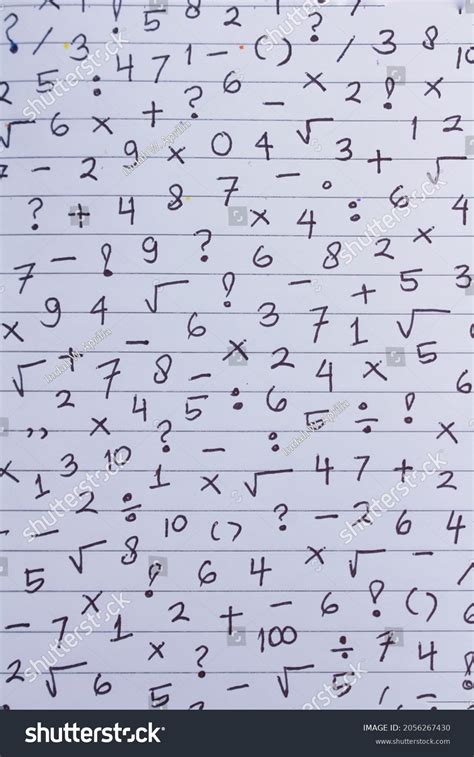 ? / 3 ! 5 8 2 ? 3 8
2 5 : 4 7 1 - ( ) / 10
√ 6 x + ? 6 - x 2 ! x
7 - 2 9 x 0 4 √ 3 + 1 2 √
? + 4 8 7 - : 6 4
7 - ! 9 ? x 4 : 8 2 x
x 9 4 √ 6 ! 6 3 7 + 1 5 √ 3
√ + 7 - 8 - x 2 4 x 5 6
2 x 4 5 : 6 5 ÷ ! x
,, 3 10 ? - : 4 7 + 2
x 1 2 ÷ 1 x √
- - 10 ( ) ? - 2 6 4
5 √ 8 ! 6 4 x √ - /
- 7 x 1 2 + - 6 ! ( ) 6
2 √ 6 x ? 100 ÷ 7 4 8
5 - √ 5 , -
shutterstock
Indah W. Aprilia
IMAGE ID: 2056267430
www.shutterstock.com